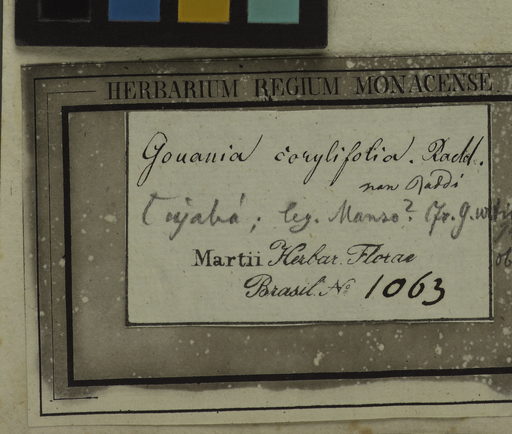 HERBARIUM REGIUM MONACENSE.
Gouania corylifolia. Radd.
non Raddi
Cujabá; leg. Manso?
Martii Herbar. Florae
Brasil. No 1063